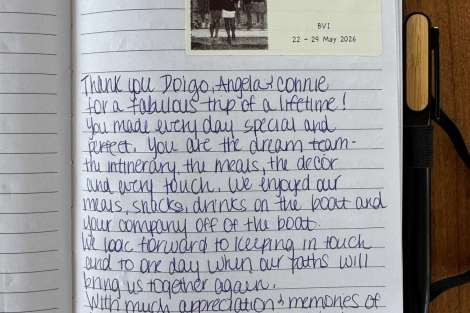 BVI
22 - 29 May 2026
Thank you Doigo, Angela & Connie
for a fabulous trip of a lifetime!
You made every day special and
perfect. You are the dream team-
the intinerary, the meals, the decor
and every touch. We enjoyed our
meals, snacks, drinks on the boat and
your company off of the boat.
We look forward to keeping in touch
and to one day when our paths will
bring us together again.
With much appreciation & memories of